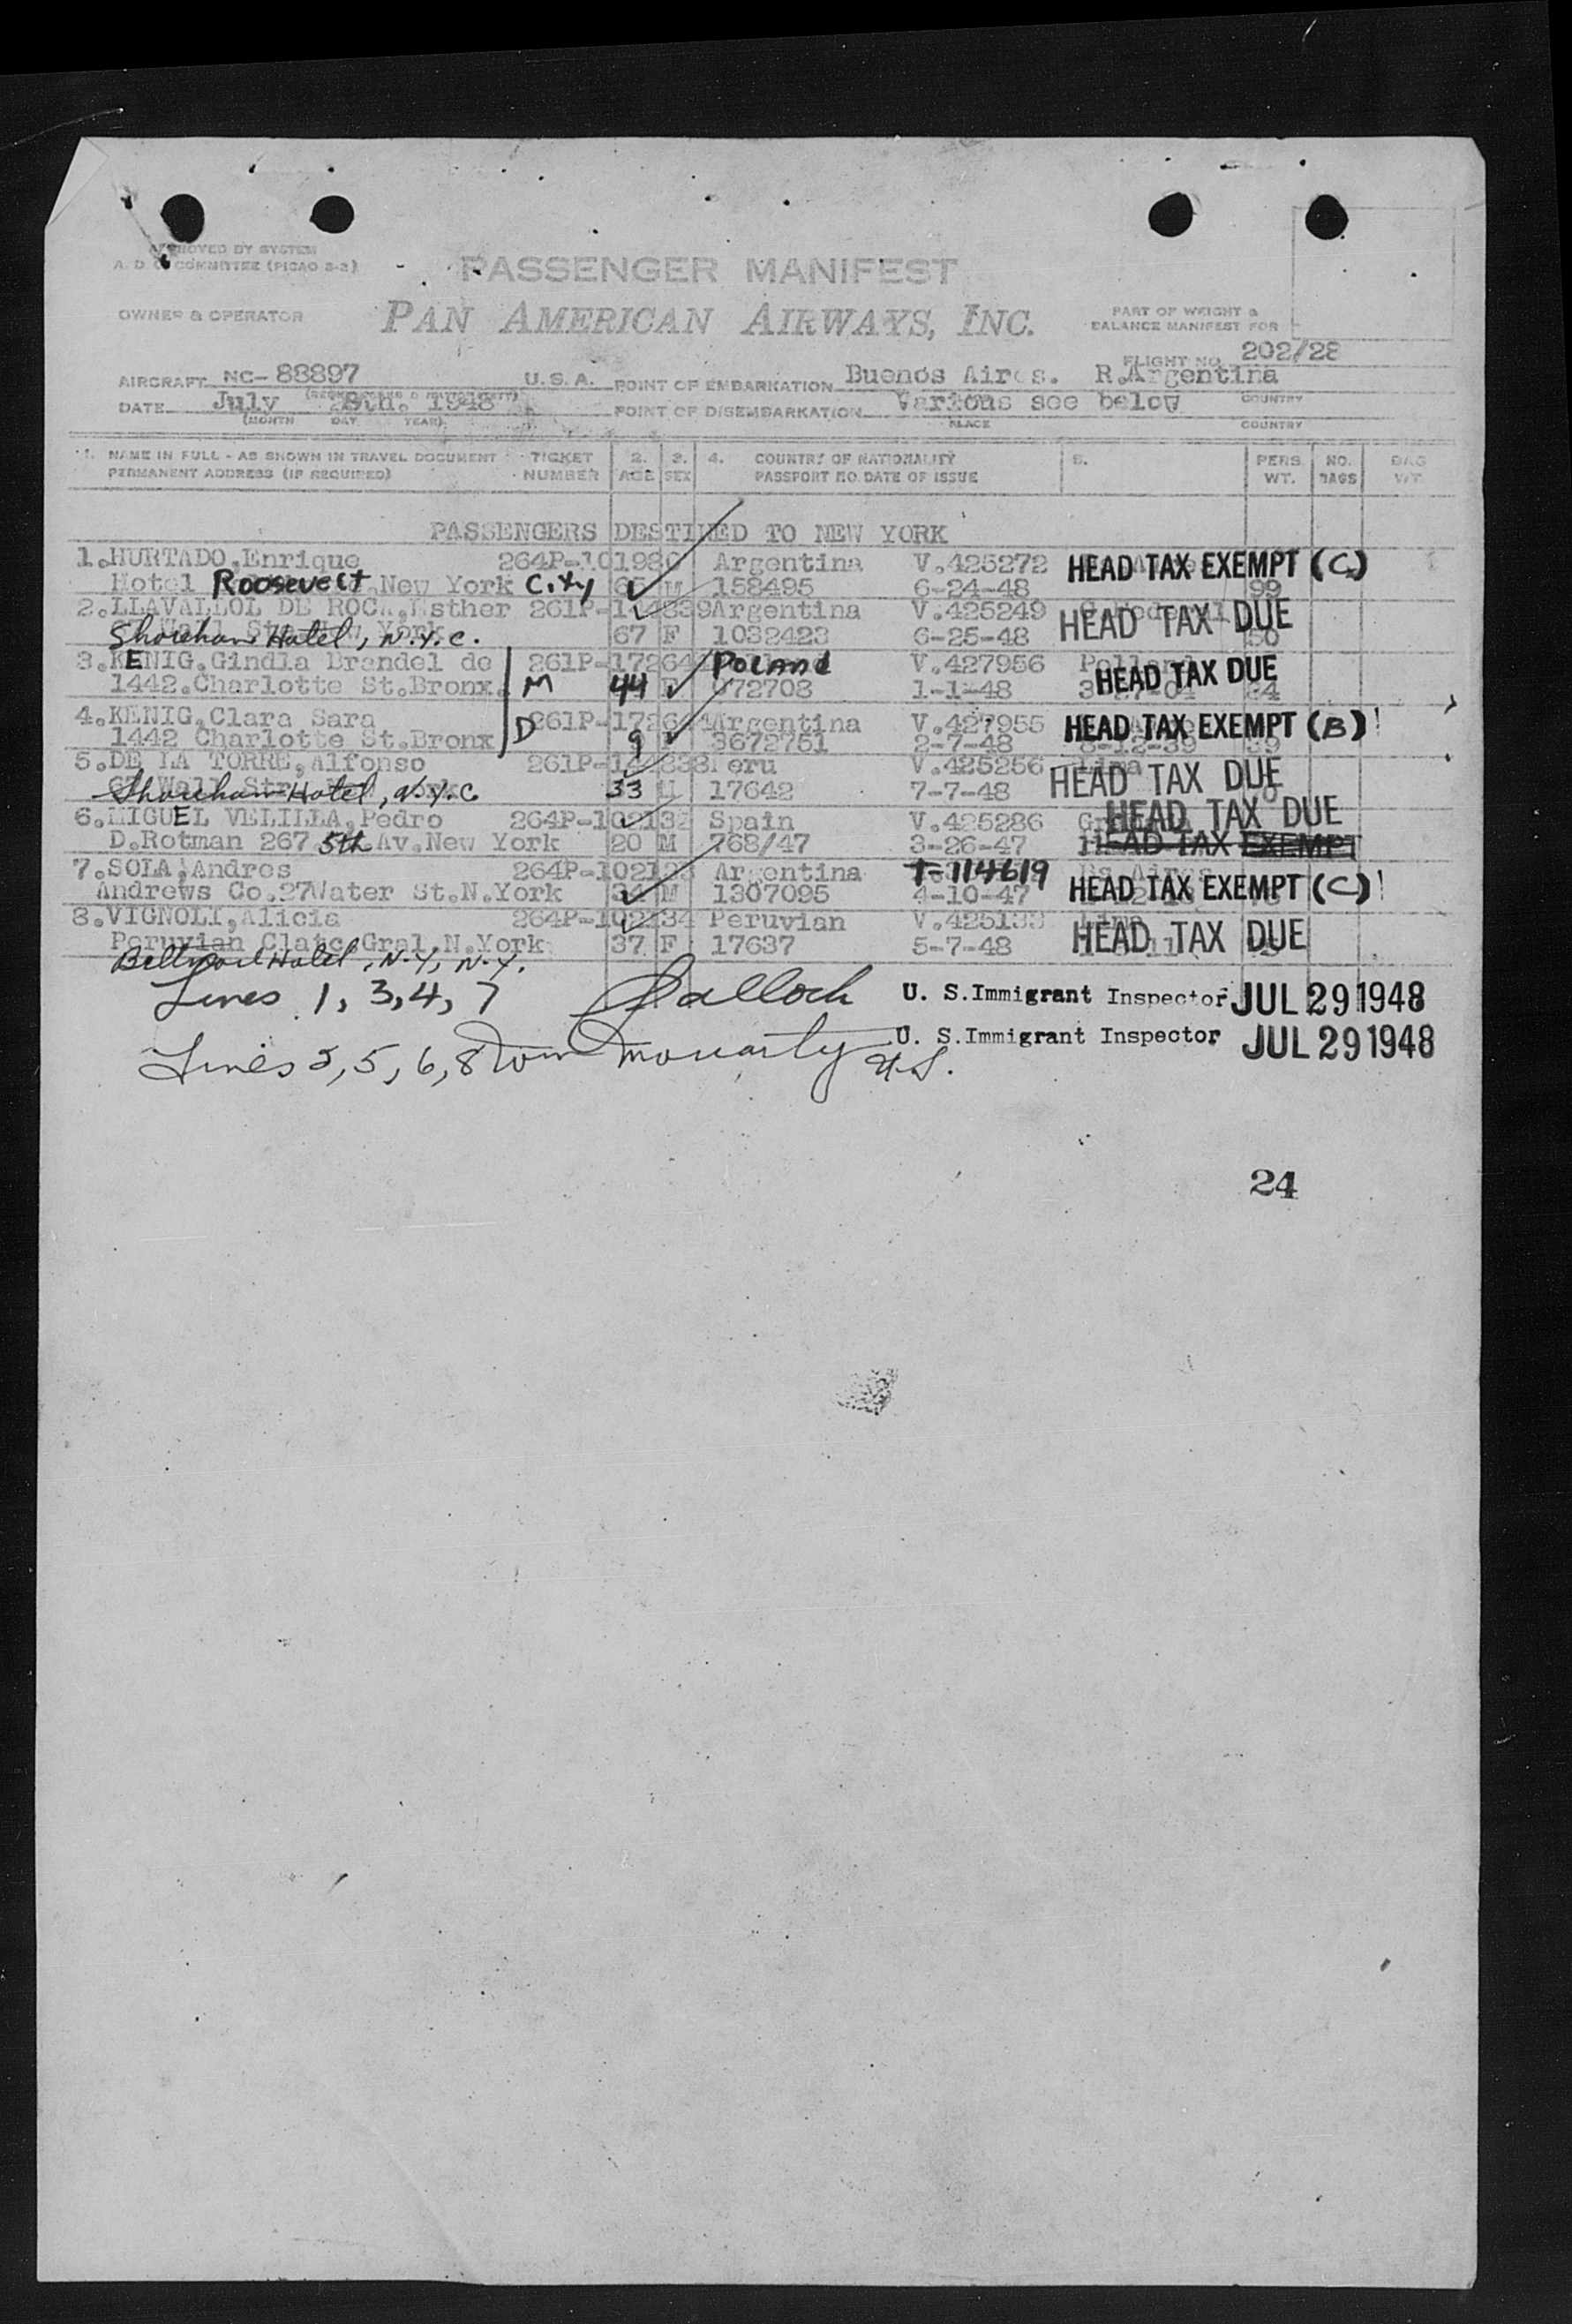 APPROVED BY SYSTEM
A. D. COMMITTEE (PICAO 8-2)
PASSENGER MANIFEST
OWNER & OPERATOR
PAN AMERICAN AIRWAYS, INC.
PART OF WEIGHT &
BALANCE MANIFEST FOR
FLIGHT NO. 202/28
AIRCRAFT NC-88897 U.S.A. POINT OF EMBARKATION Buenos Aires. R.Argentina
DATE July 28th. 1948 POINT OF DISEMBARKATION Various see below
(MONTH DAY YEAR) PLACE COUNTRY
1. NAME IN FULL - AS SHOWN IN TRAVEL DOCUMENT TICKET 2. 3. 4. COUNTRY OF NATIONALITY 5. PERS. NO. BAG
PERMANENT ADDRESS (IF REQUIRED) NUMBER AGE SEX PASSPORT NO. DATE OF ISSUE WT. BAGS WT.
PASSENGERS DESTINED TO NEW YORK
1.HURTADO,Enrique 264P-101980 Argentina V.425272 HEAD TAX EXEMPT (C)
Hotel Roosevelt New York City M 158495 6-24-48 99
2.LLAVALLOL DE ROCA,Esther 261P-144839 Argentina V.425249 HEAD TAX DUE
Shoreham Hotel, N.Y.C. 67 F 1032423 6-25-48 50
3.KENIG.Gindla Brandel de 261P-17264 Poland V.427956 HEAD TAX DUE
1442.Charlotte St.Bronx. M 44 F 972708 1-1-48
4.KENIG,Clara Sara D 261P-17264 Argentina V.427955 HEAD TAX EXEMPT (B)
1442 Charlotte St.Bronx 9 3672751 2-7-48 8-12-39 39
5.DE LA TORRE,Alfonso 261P-144838 Peru V.425256 HEAD TAX DUE
Shoreham Hotel, N.Y.C 33 M 17642 7-7-48
6.MIGUEL VELILLA,Pedro 264P-102132 Spain V.425286 HEAD TAX DUE
D.Rotman 267 5th Av.New York 20 M 768/47 3-26-47 HEAD TAX EXEMPT
7.SOLA,Andres 264P-102123 Argentina T-114619
Andrews Co.27Water St.N.York 34 M 1307095 4-10-47 HEAD TAX EXEMPT (C)
8.VIGNOLI,Alicia 264P-102134 Peruvian V.425133 Lima
Peruvian Gral.N.York 37 F 17637 5-7-48 HEAD TAX DUE
Biltmore Hotel, N.Y, N.Y.
Lines 1, 3,4, 7 U. S.Immigrant Inspector JUL 29 1948
Lines 5, 6, 8 Moriarty U.S. U. S.Immigrant Inspector JUL 29 1948
24